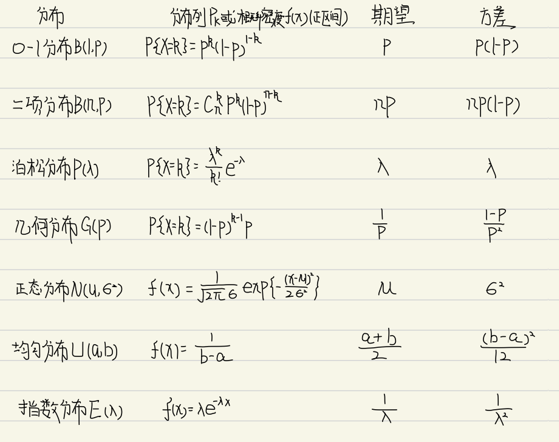 分布 分布列 Pₖ或概率密度f(x)(正区间) 期望 方差
0-1分布B(1,p) P{X=k}=pᵏ(1-p)¹⁻ᵏ p p(1-p)
二项分布B(n,p) P{X=k}=Cₙᵏ pᵏ(1-p)ⁿ⁻ᵏ np np(1-p)
泊松分布P(λ) P{X=k}=λᵏ/k! e^-λ λ λ
几何分布G(p) P{X=k}=(1-p)ᵏ⁻¹p 1/p (1-p)/p²
正态分布N(μ,σ²) f(x)=1/(√2π σ) exp{-(x-μ)²/2σ²} μ σ²
均匀分布U(a,b) f(x)=1/(b-a) (a+b)/2 (b-a)²/12
指数分布E(λ) f(x)=λe^-λx 1/λ 1/λ²